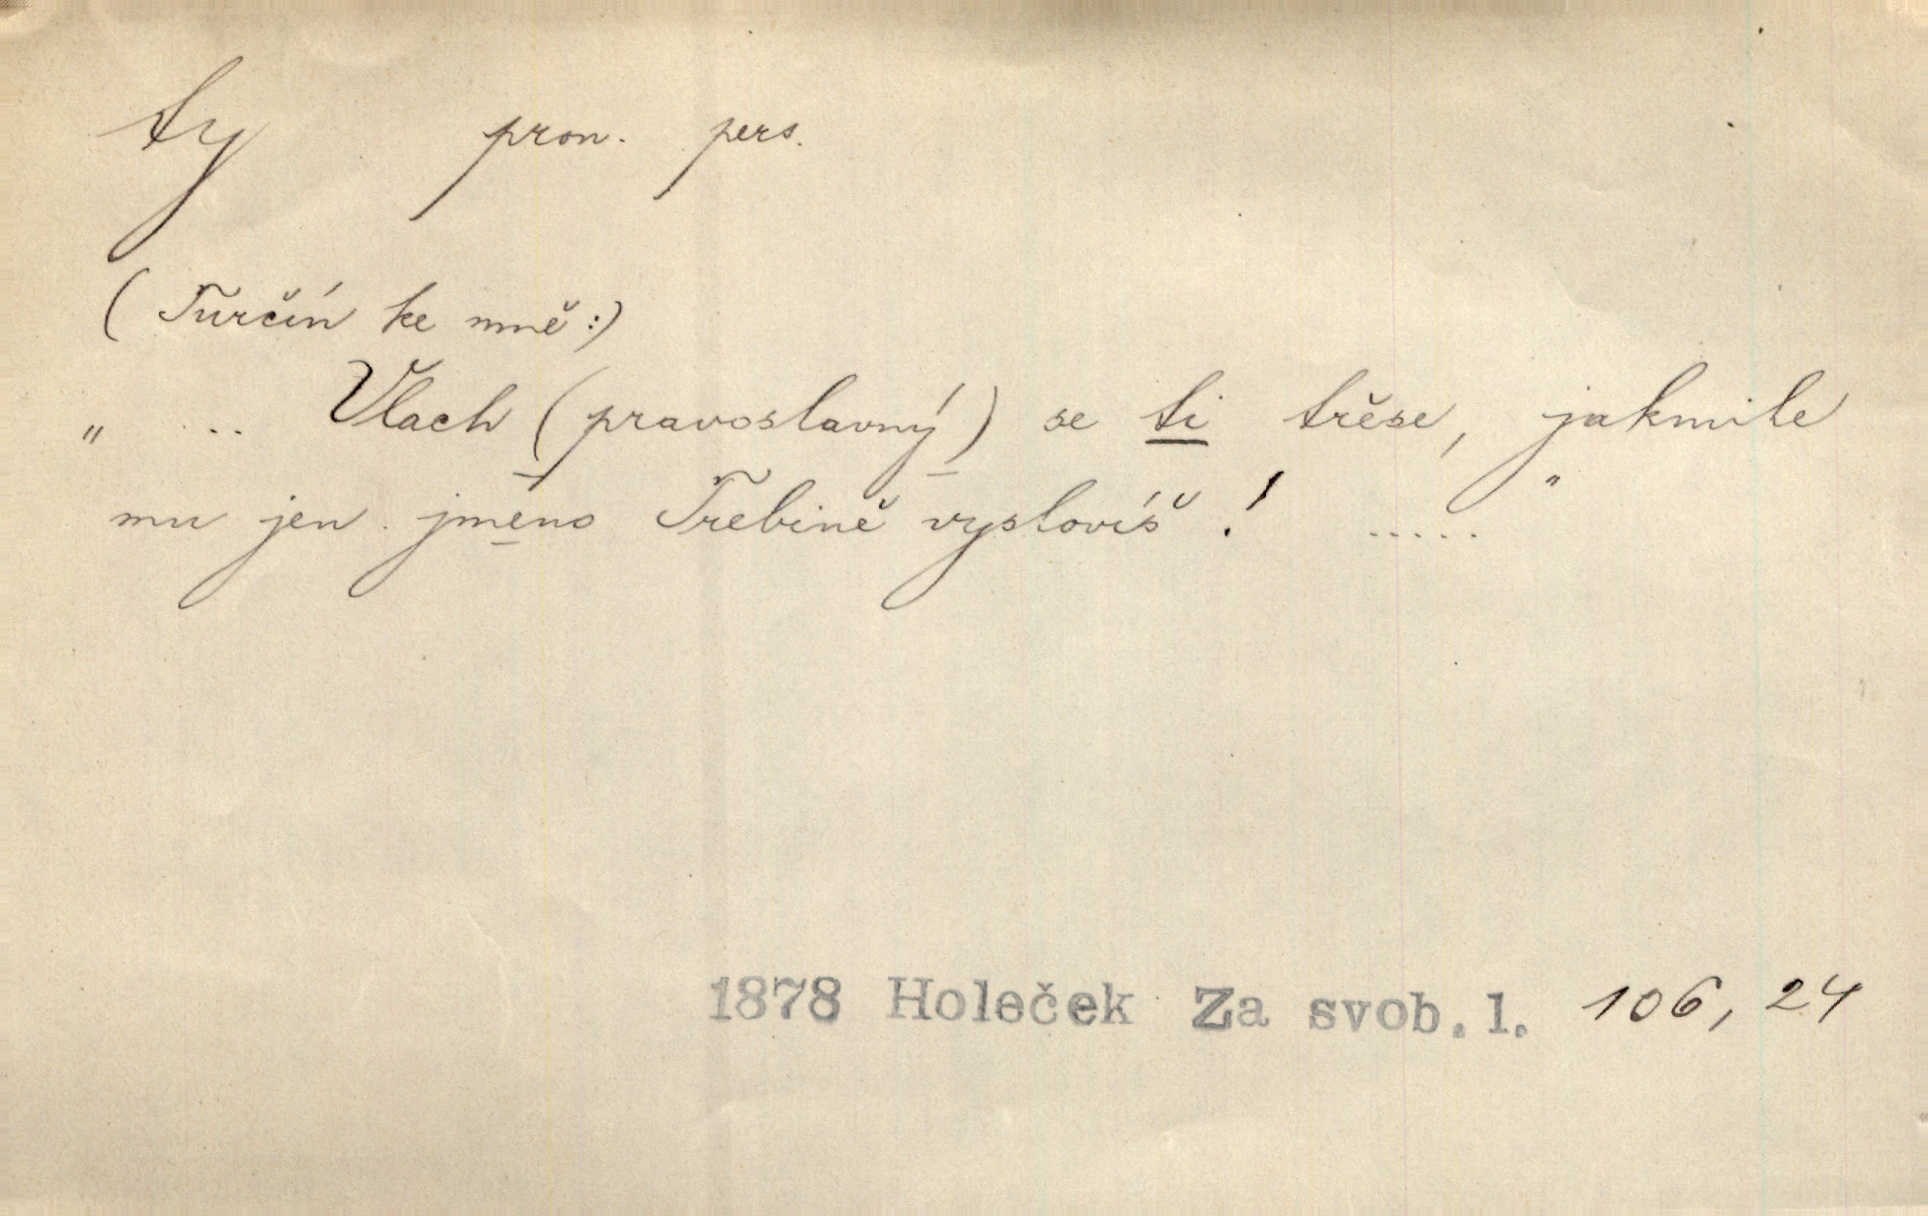 ty pron. pers.
(Turčín ke mně:)
„ .. Vlach (pravoslavný) se ti třese, jakmile
mu jen jmeno Trebině vyslovíš! ....."
1878 Holeček Za svob. 1. 106, 24